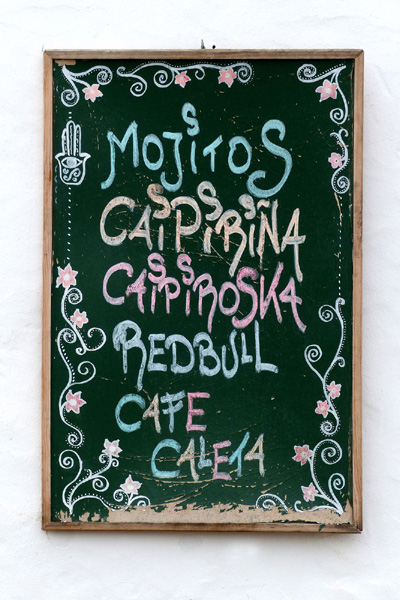 MOJITOS
CAIPIRIÑA
CAIPIROSKA
REDBULL
CAFE
CALETA